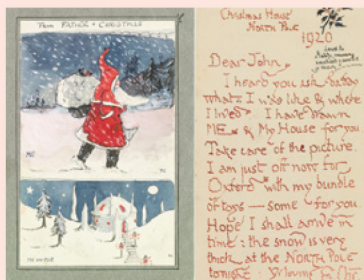 From FATHER CHRISTMAS
ME
MY HOUSE
Christmas House
NORTH POLE
1920
Love to
Dear John
I heard you ask daddy
what I was like & where
I lived. I have drawn
ME & My House for you
Take care of the picture.
I am just off now for
Oxford with my bundle
of toys — some for you.
Hope I shall arrive in
time: the snow is very
thick at the NORTH POLE
tonight. Yr loving Fr. Chr.